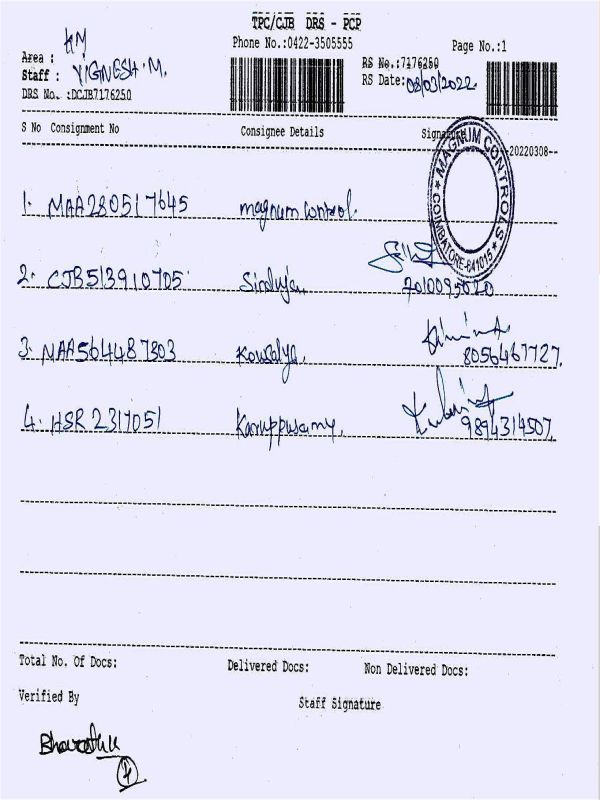 TPC/CJB DRS - PCP
Phone No.:0422-3505555
Page No.:1
Area : HM
Staff : VIGNESH.M.
DRS No. :DCJB7176250
RS No.:7176250
RS Date: 08/03/2022.
S No Consignment No Consignee Details Signature
--20220308--
MAGNUM CONTROLS
COIMBATORE-641015
1. MAA280517645 magnum control.
2. CJB513910705 Sinduja
7010095020
3. MAA564487303 Kowsalya,
8056467727,
4. HSR 2317051 Karuppusamy,
9894314507,
Total No. Of Docs: Delivered Docs: Non Delivered Docs:
Verified By Staff Signature
4